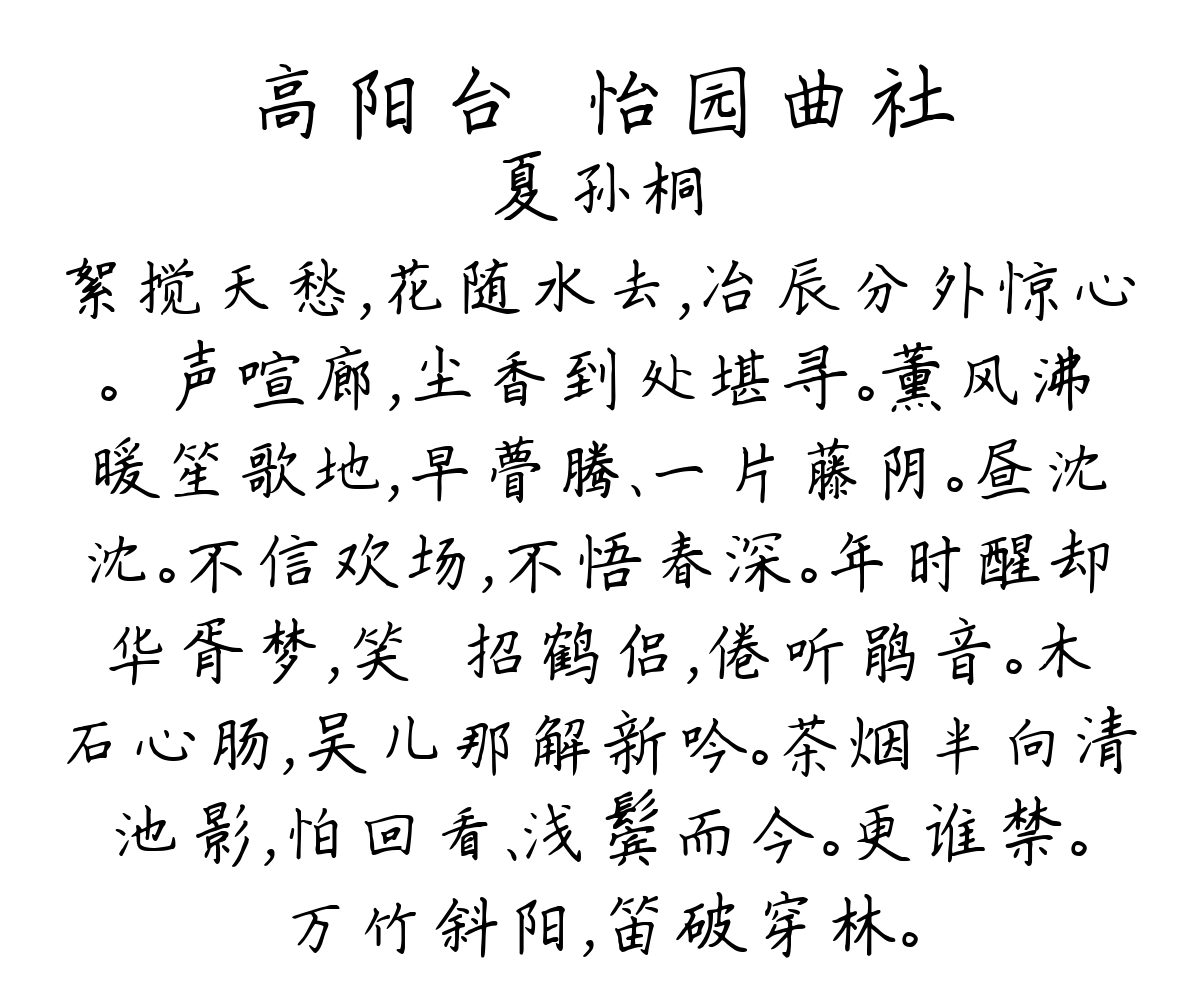 高阳台 怡园曲社
夏孙桐
絮搅天愁,花随水去,冶辰分外惊心
。 声喧廊,尘香到处堪寻。薰风沸
暖笙歌地,早瞢腾、一片藤阴。昼沈
沈。不信欢场,不悟春深。年时醒却
华胥梦,笑 招鹤侣,倦听鹃音。木
石心肠,吴儿那解新吟。茶烟半向清
池影,怕回看、浅鬓而今。更谁禁。
万竹斜阳,笛破穿林。